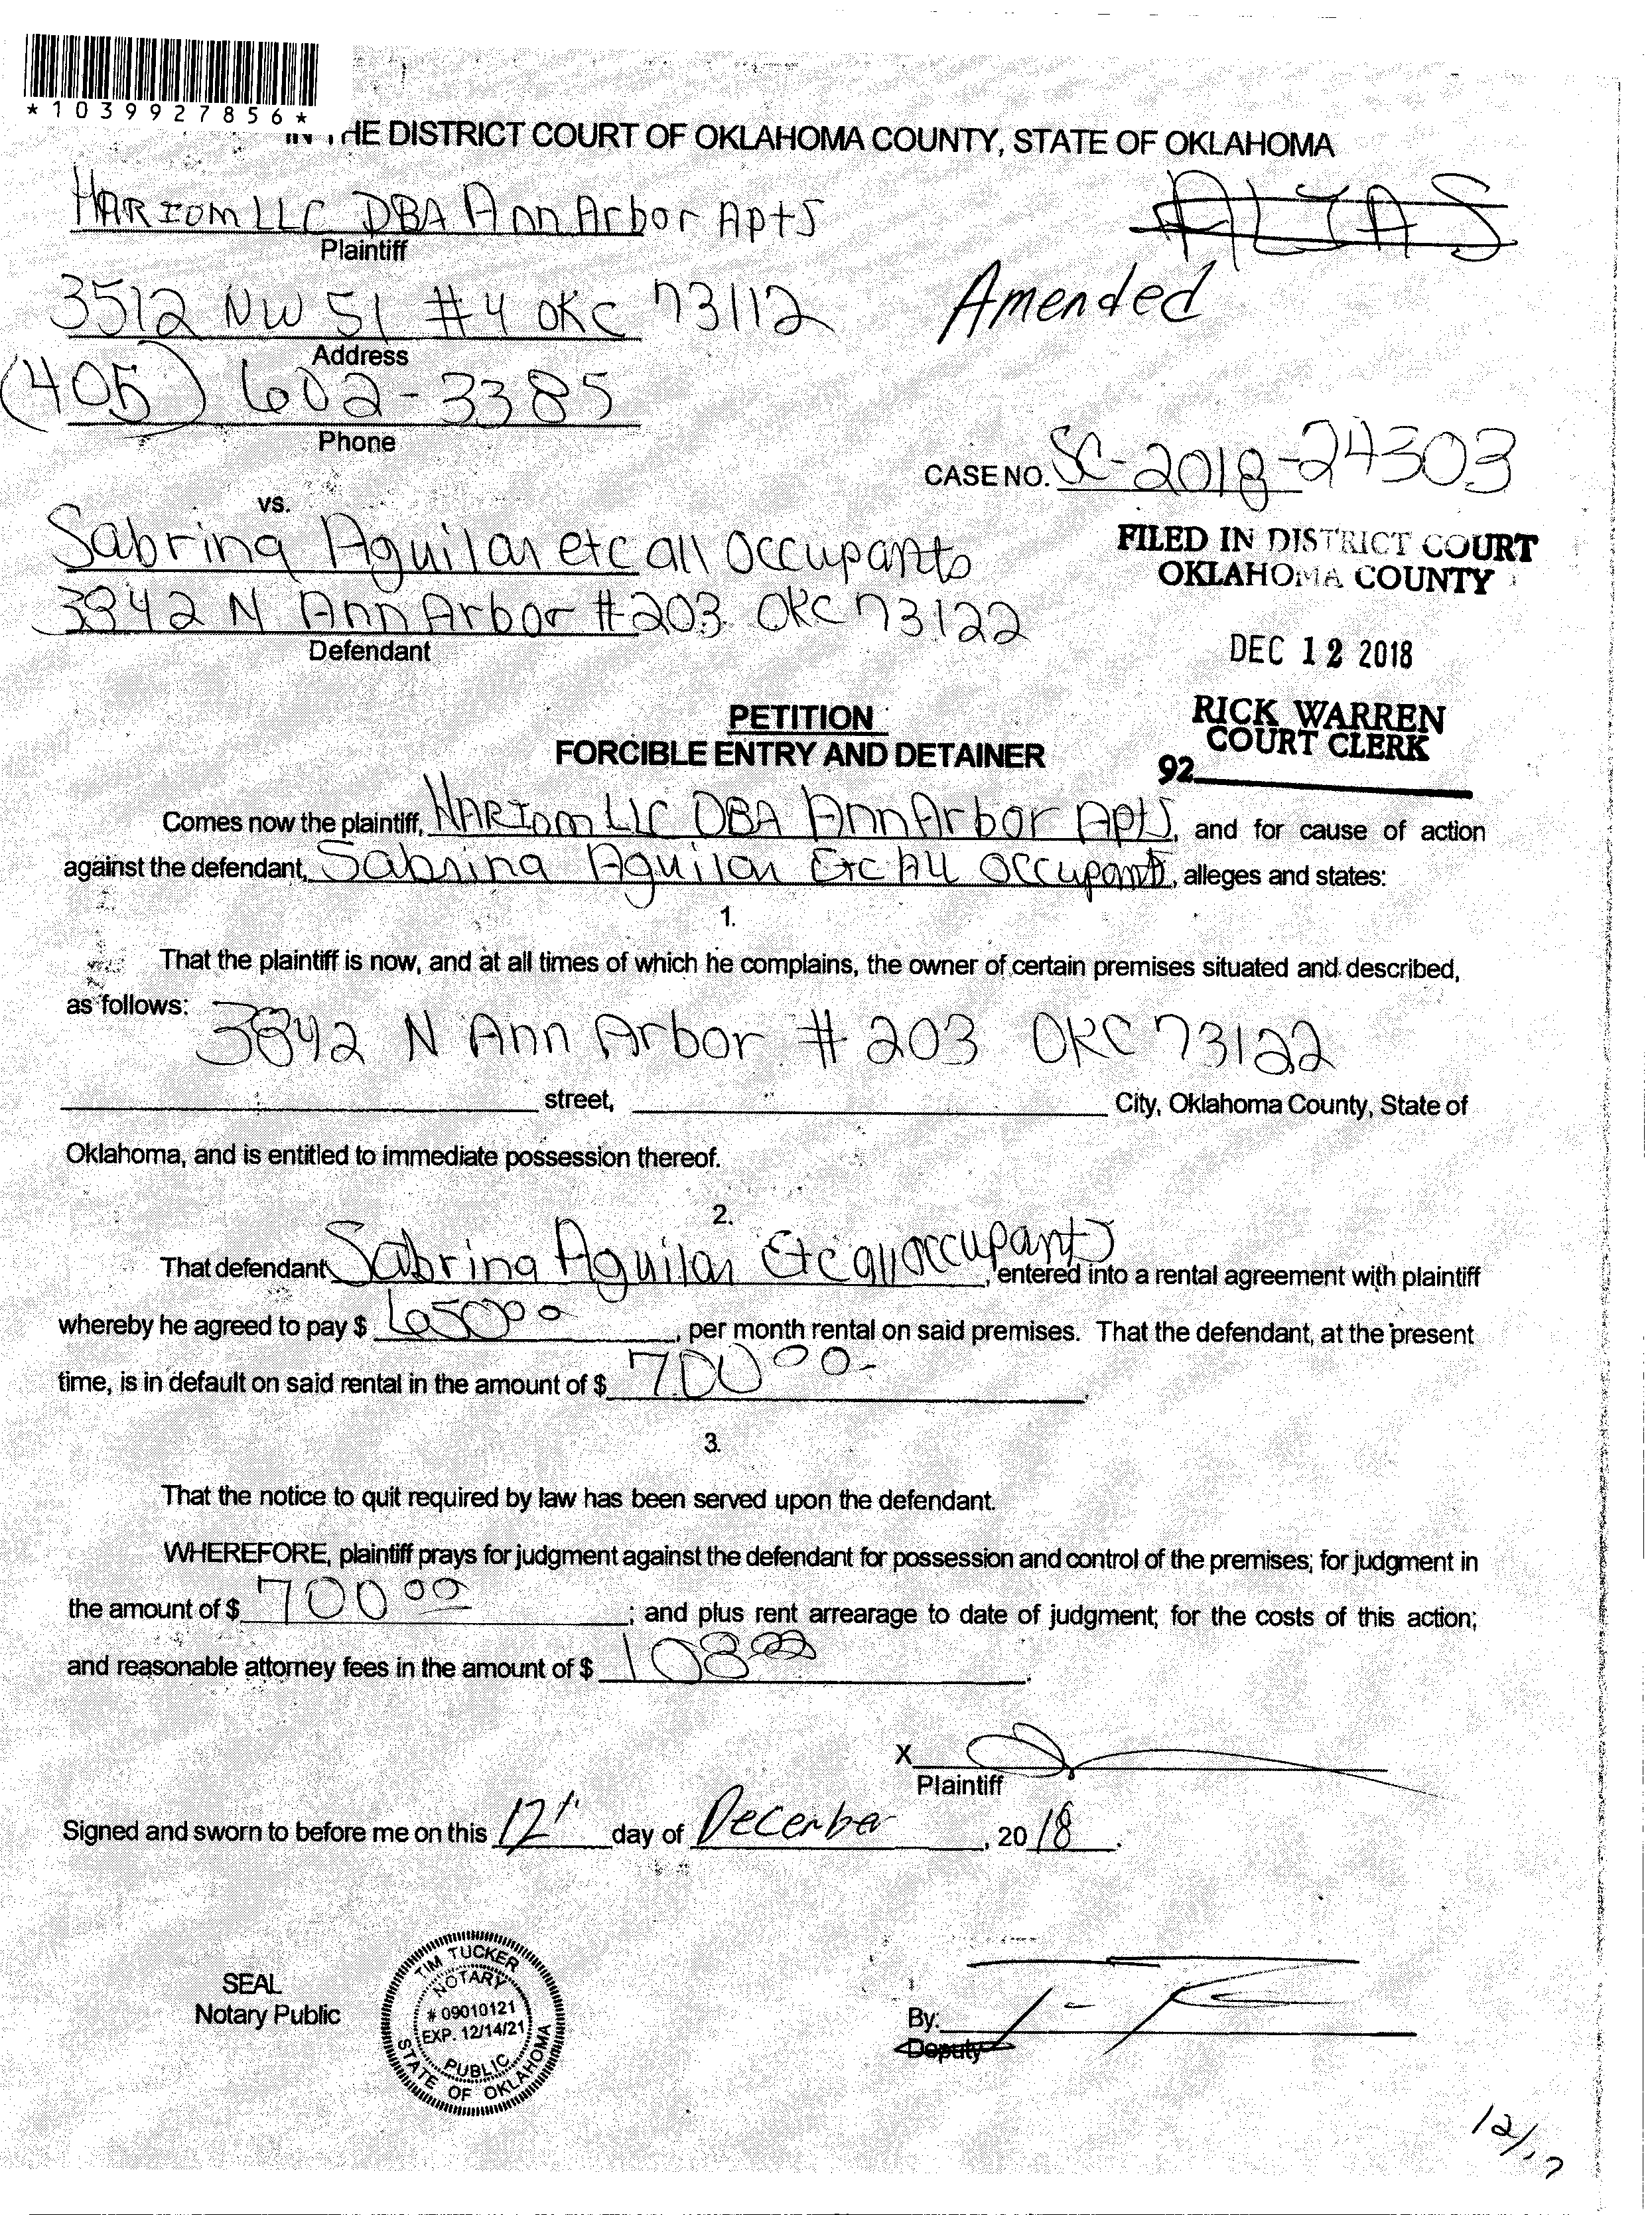 *1039927856*
IN THE DISTRICT COURT OF OKLAHOMA COUNTY, STATE OF OKLAHOMA
HARIOM LLC DBA Ann Arbor Apts
ALIAS
Plaintiff
3512 NW 51 #4 OKC 73112
Amended
Address
(405) 602-3385
Phone
CASE NO. SC-2018-24303
vs.
Sabrina Aguilar etc all Occupants
FILED IN DISTRICT COURT
OKLAHOMA COUNTY
3842 N Ann Arbor #203 OKC 73122
Defendant
DEC 12 2018
PETITION
RICK WARREN
COURT CLERK
FORCIBLE ENTRY AND DETAINER
92
Comes now the plaintiff, HARIOM LLC DBA Ann Arbor Apts, and for cause of action
against the defendant, Sabrina Aguilar Etc All Occupants, alleges and states:
1.
That the plaintiff is now, and at all times of which he complains, the owner of certain premises situated and described,
as follows:
3842 N Ann Arbor # 203 OKC 73122
street, City, Oklahoma County, State of
Oklahoma, and is entitled to immediate possession thereof.
2.
That defendant Sabrina Aguilar Etc all occupants, entered into a rental agreement with plaintiff
whereby he agreed to pay $ 650 00, per month rental on said premises. That the defendant, at the present
time, is in default on said rental in the amount of $ 700 00-.
3.
That the notice to quit required by law has been served upon the defendant.
WHEREFORE, plaintiff prays for judgment against the defendant for possession and control of the premises; for judgment in
the amount of $ 700 00; and plus rent arrearage to date of judgment; for the costs of this action;
and reasonable attorney fees in the amount of $ 108 00.
X
Plaintiff
Signed and sworn to before me on this 12th day of December, 2018.
SEAL
Notary Public
TIM TUCKER
NOTARY
# 09010121
EXP. 12/14/21
PUBLIC
STATE OF OKLAHOMA
By:
Deputy